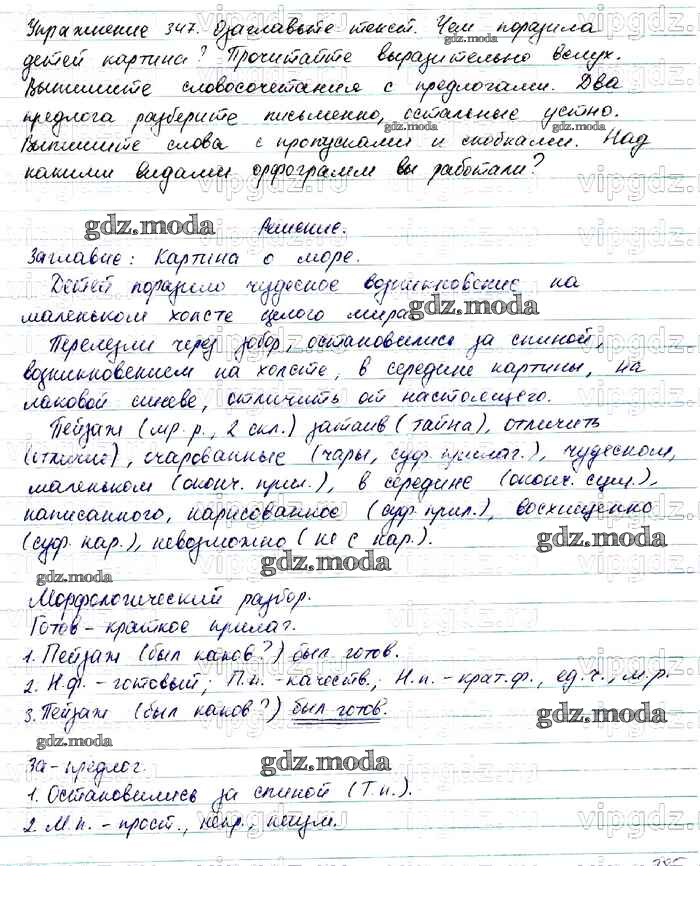 Упражнение 347. Озаглавьте текст. Чем поразила
детей картина? Прочитайте выразительно вслух.
Выпишите словосочетания с предлогами. Два
предлога разберите письменно, остальные устно.
Выпишите слова с пропусками и скобками. Над
какими видами орфограмм вы работали?
gdz.moda Решение.
Заглавие: Картина о море.
Детей поразило чудесное возникновение на
маленьком холсте целого мира.
gdz.moda
Перелезли через забор, остановились за спиной,
возникновением на холсте, в середине картины, на
лаковой синеве, отличить от настоящего.
Пейзаж (мр.р., 2 скл.) затаив (тайна), отличить
(отличие), очарованные (чары, суф. прилаг.), чудесном,
маленьком (оконч. прил.), в середине (оконч. сущ.),
написанного, нарисованное (суф. прил.), восхищенно
(суф. нар.), невозможно (не с нар.).
gdz.moda
gdz.moda gdz.moda
Морфологический разбор.
Готов - краткое прилаг.
1. Пейзаж (был каков?) был готов.
2. Н.ф. - готовый; П.п. - качеств.; Н.п. - крат.ф., ед.ч., м.р.
3. Пейзаж (был каков?) был готов.
gdz.moda
gdz.moda gdz.moda
За - предлог.
1. Остановились за спиной (Т.п.).
2. М.п. - прост., непр., неизм.